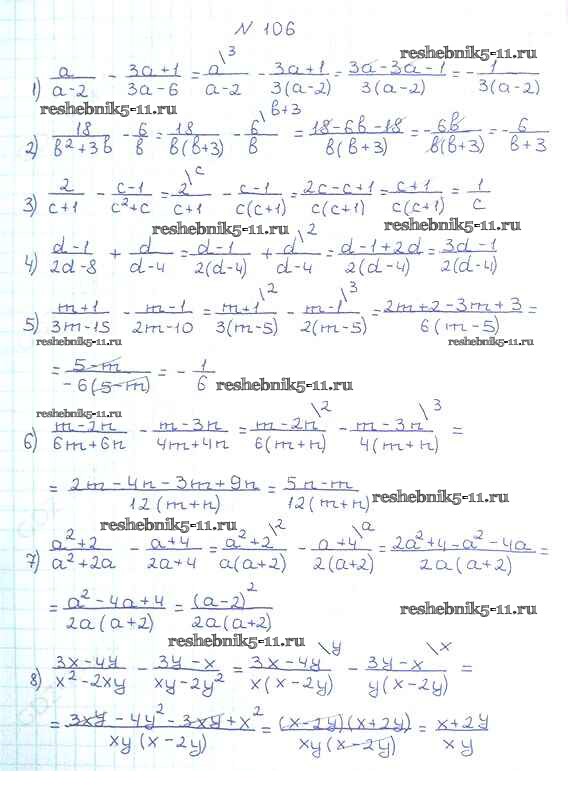 N 106
reshebnik5-11.ru
1) a/(a-2) - (3a+1)/(3a-6) = a\3/(a-2) - (3a+1)/(3(a-2)) = (3a-3a-1)/(3(a-2)) = - 1/(3(a-2))
reshebnik5-11.ru
2) 18/(в²+3в) - 6/в = 18/(в(в+3)) - 6\в+3/в = (18-6в-18)/(в(в+3)) = - 6в/(в(в+3)) = - 6/(в+3)
3) 2/(c+1) - (c-1)/(c²+c) = 2\c/(c+1) - (c-1)/(c(c+1)) = (2c-c+1)/(c(c+1)) = (c+1)/(c(c+1)) = 1/c
reshebnik5-11.ru
4) (d-1)/(2d-8) + d/(d-4) = (d-1)/(2(d-4)) + d\2/(d-4) = (d-1+2d)/(2(d-4)) = (3d-1)/(2(d-4))
5) (m+1)/(3m-15) - (m-1)/(2m-10) = (m+1)\2/(3(m-5)) - (m-1)\3/(2(m-5)) = (2m+2-3m+3)/(6(m-5)) =
reshebnik5-11.ru reshebnik5-11.ru
= (5-m)/(-6(5-m)) = - 1/6 reshebnik5-11.ru
reshebnik5-11.ru
6) (m-2n)/(6m+6n) - (m-3n)/(4m+4n) = (m-2n)\2/(6(m+n)) - (m-3n)\3/(4(m+n)) =
= (2m-4n-3m+9n)/(12(m+n)) = (5n-m)/(12(m+n)) reshebnik5-11.ru
reshebnik5-11.ru
7) (a²+2)/(a²+2a) - (a+4)/(2a+4) = (a²+2)\2/(a(a+2)) - (a+4)\a/(2(a+2)) = (2a²+4-a²-4a)/(2a(a+2)) =
= (a²-4a+4)/(2a(a+2)) = (a-2)²/(2a(a+2)) reshebnik5-11.ru
reshebnik5-11.ru
8) (3x-4y)/(x²-2xy) - (3y-x)/(xy-2y²) = (3x-4y)\y/(x(x-2y)) - (3y-x)\x/(y(x-2y)) =
= (3xy-4y²-3xy+x²)/(xy(x-2y)) = (x-2y)(x+2y)/(xy(x-2y)) = (x+2y)/(xy)